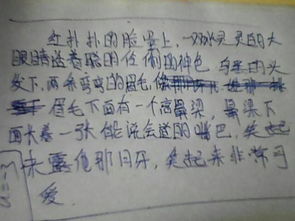 红扑扑的脸蛋上,一双水灵灵的大
眼睛透着聪的任俏的神色 乌黑的头
发下,两条弯弯的眉毛
眉毛下面有一个高鼻梁,鼻梁下
面长着一张能说会道的嘴巴,笑起
来露他那门牙,笑起来非常可
爱.